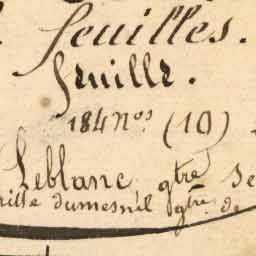 feuilles.
feuille.
184 nos (10)
Leblanc gtre se
rille dumesnil gtre. de